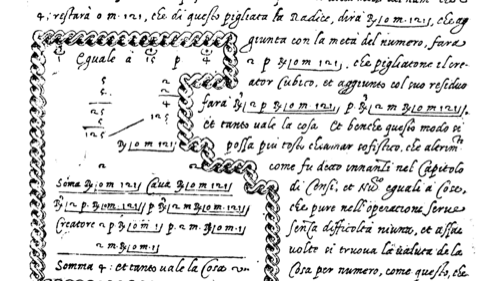 4; restarà 0 m. 121, che di questo pigliata la Radice, dirà R⌊0 m. 121⌋, che ag
giunta con la metà del numero, fara
2 p R⌊0 m. 121⌋, che pigliatone il cre
ator Cubico, et aggiunto col suo residuo
farà R³⌊2 p R⌊0 m 121⌋⌋ p. R³⌊2 m R⌊0 m 121⌋⌋.
et tanto uale la cosa Et benche questo modo si
possa più tosto chiamar sofistico, che
come fu detto innanti nel Capitolo
di Censi, et Nu.ro eguali à Cose,
che pure nell'operatione serue
senza difficoltà niuna, et assai
uolte si truoua la ualuta de la
Cosa per numero, come questo, che
1 Eguale à 15 p 4
5 2
5 2
25 4
5 125
125
R⌊0 m 121⌋
2 2
Somma R⌊0 m 121⌋ Caua R⌊0 m 121⌋
R³⌊2 p. R⌊0 m 121⌋⌋ p R³⌊2 m R⌊0 m 121⌋⌋
Creatore 2 p R⌊0 m 1⌋ p. 2 m. R⌊0 m 1⌋
2 m. R⌊0 m 1⌋
Somma 4: et tanto uale la Cosa